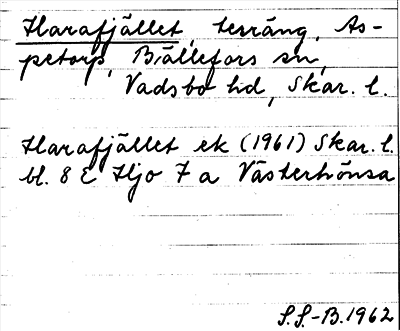 Harafjället, terräng, As-
petorp, Bällefors sn,
Vadsbo hd, Skar. l.
Harafjället ek (1961) Skar. l.
bl. 8 E Hjo 7 a Västerhönsa
S.S.-B. 1962